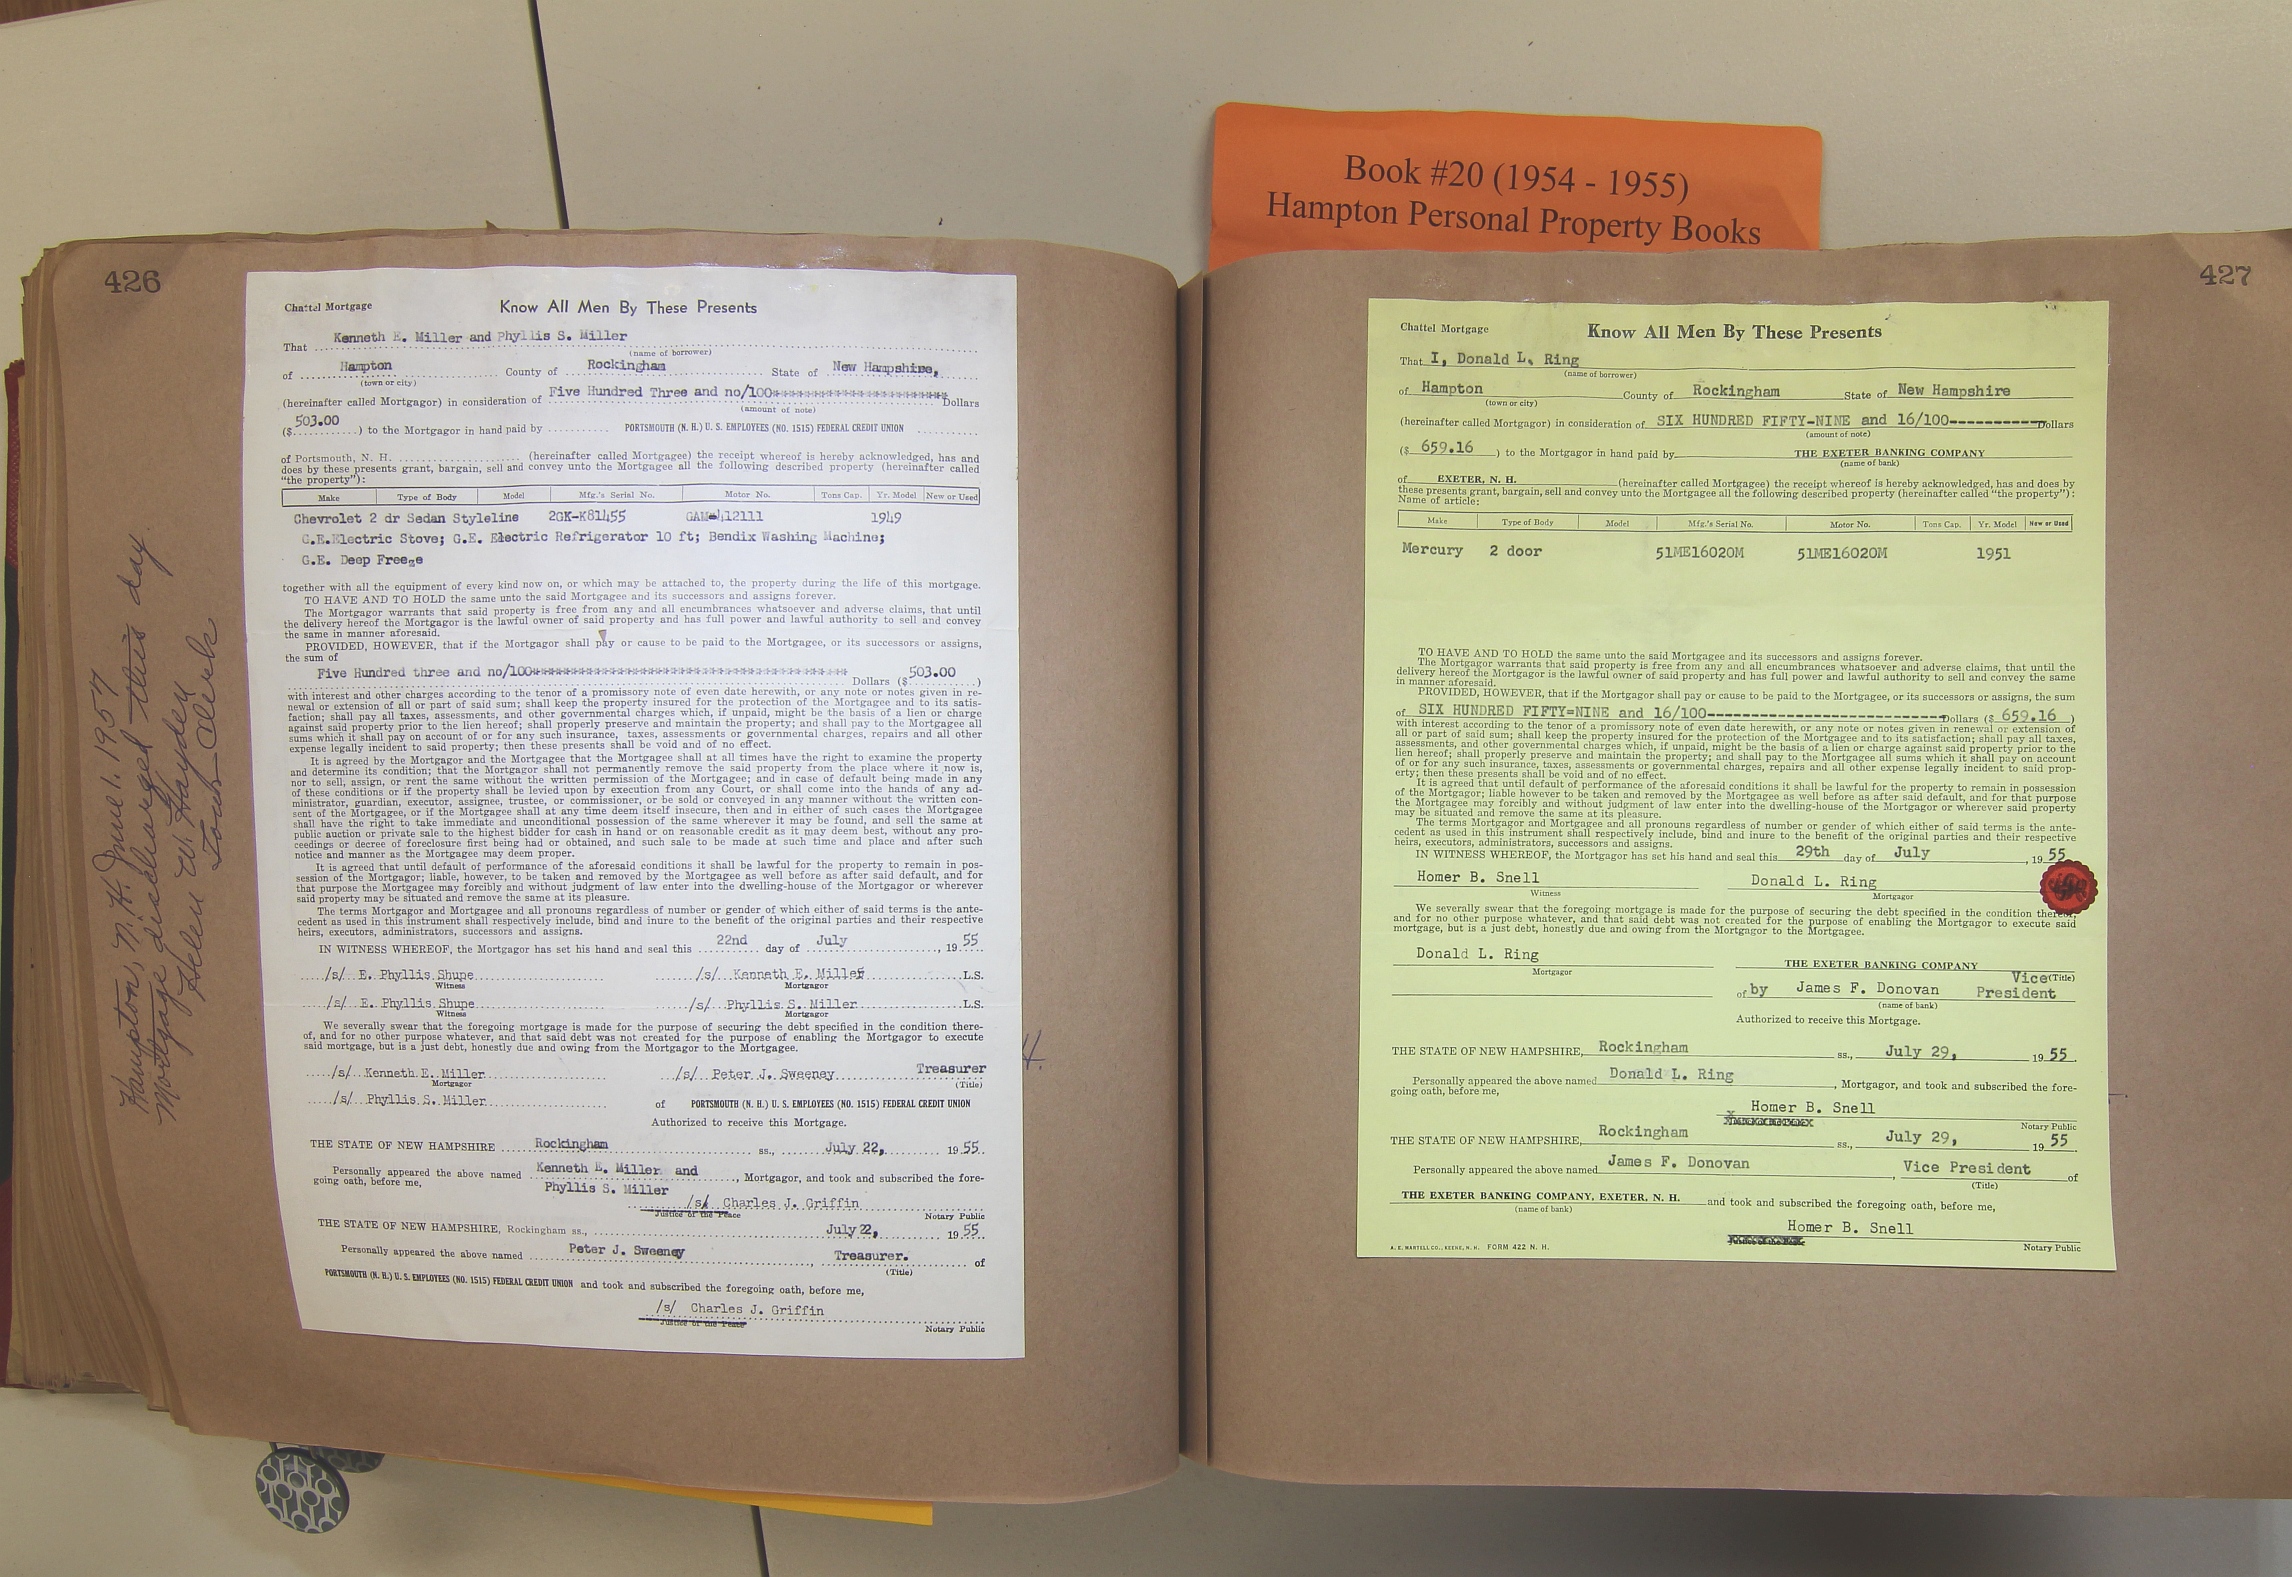 Book #20 (1954 - 1955)
Hampton Personal Property Books
426
Hampton, N.H. June 1. 1957
Mortgage discharged this day
Helen W. Hayden
Town Clerk
Chattel Mortgage
Know All Men By These Presents
That Kenneth E. Miller and Phyllis S. Miller
(name of borrower)
of Hampton County of Rockingham State of New Hampshire,
(town or city)
(hereinafter called Mortgagor) in consideration of Five Hundred Three and no/100************************** Dollars
(amount of note)
($ 503.00 ) to the Mortgagor in hand paid by PORTSMOUTH (N. H.) U. S. EMPLOYEES (NO. 1515) FEDERAL CREDIT UNION
of Portsmouth, N. H. (hereinafter called Mortgagee) the receipt whereof is hereby acknowledged, has and
does by these presents grant, bargain, sell and convey unto the Mortgagee all the following described property (hereinafter called
"the property"):
Make Type of Body Model Mfg.'s Serial No. Motor No. Tons Cap. Yr. Model New or Used
Chevrolet 2 dr Sedan Styleline 2GK-K81455 GAM-412111 1949
G.E.Electric Stove; G.E. Electric Refrigerator 10 ft; Bendix Washing Machine;
G.E. Deep Freeze
together with all the equipment of every kind now on, or which may be attached to, the property during the life of this mortgage.
TO HAVE AND TO HOLD the same unto the said Mortgagee and its successors and assigns forever.
The Mortgagor warrants that said property is free from any and all encumbrances whatsoever and adverse claims, that until
the delivery hereof the Mortgagor is the lawful owner of said property and has full power and lawful authority to sell and convey
the same in manner aforesaid.
PROVIDED, HOWEVER, that if the Mortgagor shall pay or cause to be paid to the Mortgagee, or its successors or assigns,
the sum of
Five Hundred three and no/100*********************************************** Dollars ($ 503.00 )
with interest and other charges according to the tenor of a promissory note of even date herewith, or any note or notes given in re-
newal or extension of all or part of said sum; shall keep the property insured for the protection of the Mortgagee and to its satis-
faction; shall pay all taxes, assessments, and other governmental charges which, if unpaid, might be the basis of a lien or charge
against said property prior to the lien hereof; shall properly preserve and maintain the property; and shall pay to the Mortgagee all
sums which it shall pay on account of or for any such insurance, taxes, assessments or governmental charges, repairs and all other
expense legally incident to said property; then these presents shall be void and of no effect.
It is agreed by the Mortgagor and the Mortgagee that the Mortgagee shall at all times have the right to examine the property
and determine its condition; that the Mortgagor shall not permanently remove the said property from the place where it now is,
nor to sell, assign, or rent the same without the written permission of the Mortgagee; and in case of default being made in any
of these conditions or if the property shall be levied upon by execution from any Court, or shall come into the hands of any ad-
ministrator, guardian, executor, assignee, trustee, or commissioner, or be sold or conveyed in any manner without the written con-
sent of the Mortgagee, or if the Mortgagee shall at any time deem itself insecure, then and in either of such cases the Mortgagee
shall have the right to take immediate and unconditional possession of the same wherever it may be found, and sell the same at
public auction or private sale to the highest bidder for cash in hand or on reasonable credit as it may deem best, without any pro-
ceedings or decree of foreclosure first being had or obtained, and such sale to be made at such time and place and after such
notice and manner as the Mortgagee may deem proper.
It is agreed that until default of performance of the aforesaid conditions it shall be lawful for the property to remain in pos-
session of the Mortgagor; liable, however, to be taken and removed by the Mortgagee as well before as after said default, and for
that purpose the Mortgagee may forcibly and without judgment of law enter into the dwelling-house of the Mortgagor or wherever
said property may be situated and remove the same at its pleasure.
The terms Mortgagor and Mortgagee and all pronouns regardless of number or gender of which either of said terms is the ante-
cedent as used in this instrument shall respectively include, bind and inure to the benefit of the original parties and their respective
heirs, executors, administrators, successors and assigns.
IN WITNESS WHEREOF, the Mortgagor has set his hand and seal this 22nd day of July , 19 55
/s/ E. Phyllis Shupe /s/ Kenneth E. Miller L.S.
Witness Mortgagor
/s/ E. Phyllis Shupe /s/ Phyllis S. Miller L.S.
Witness Mortgagor
We severally swear that the foregoing mortgage is made for the purpose of securing the debt specified in the condition there-
of, and for no other purpose whatever, and that said debt was not created for the purpose of enabling the Mortgagor to execute
said mortgage, but is a just debt, honestly due and owing from the Mortgagor to the Mortgagee.
/s/ Kenneth E. Miller /s/ Peter J. Sweeney Treasurer
Mortgagor (Title)
/s/ Phyllis S. Miller of PORTSMOUTH (N. H.) U. S. EMPLOYEES (NO. 1515) FEDERAL CREDIT UNION
Authorized to receive this Mortgage.
THE STATE OF NEW HAMPSHIRE Rockingham ss., July 22, 19 55
Personally appeared the above named Kenneth E. Miller and , Mortgagor, and took and subscribed the fore-
going oath, before me, Phyllis S. Miller
/s/ Charles J. Griffin
Justice of the Peace Notary Public
THE STATE OF NEW HAMPSHIRE, Rockingham ss., July 22, 19 55
Personally appeared the above named Peter J. Sweeney , Treasurer. of
(Title)
PORTSMOUTH (N. H.) U. S. EMPLOYEES (NO. 1515) FEDERAL CREDIT UNION and took and subscribed the foregoing oath, before me,
/s/ Charles J. Griffin
Justice of the Peace Notary Public
427
Chattel Mortgage
Know All Men By These Presents
That I, Donald L. Ring
(name of borrower)
of Hampton County of Rockingham State of New Hampshire
(town or city)
(hereinafter called Mortgagor) in consideration of SIX HUNDRED FIFTY-NINE and 16/100----------- Dollars
(amount of note)
($ 659.16 ) to the Mortgagor in hand paid by THE EXETER BANKING COMPANY
(name of bank)
of EXETER, N. H. (hereinafter called Mortgagee) the receipt whereof is hereby acknowledged, has and does by
these presents grant, bargain, sell and convey unto the Mortgagee all the following described property (hereinafter called "the property"):
Name of article:
Make Type of Body Model Mfg.'s Serial No. Motor No. Tons Cap. Yr. Model New or Used
Mercury 2 door 51ME16020M 51ME16020M 1951
TO HAVE AND TO HOLD the same unto the said Mortgagee and its successors and assigns forever.
The Mortgagor warrants that said property is free from any and all encumbrances whatsoever and adverse claims, that until the
delivery hereof the Mortgagor is the lawful owner of said property and has full power and lawful authority to sell and convey the same
in manner aforesaid.
PROVIDED, HOWEVER, that if the Mortgagor shall pay or cause to be paid to the Mortgagee, or its successors or assigns, the sum
of SIX HUNDRED FIFTY=NINE and 16/100--------------------------- Dollars ($ 659.16 )
with interest according to the tenor of a promissory note of even date herewith, or any note or notes given in renewal or extension of
all or part of said sum; shall keep the property insured for the protection of the Mortgagee and to its satisfaction; shall pay all taxes,
assessments, and other governmental charges which, if unpaid, might be the basis of a lien or charge against said property prior to the
lien hereof; shall properly preserve and maintain the property; and shall pay to the Mortgagee all sums which it shall pay on account
of or for any such insurance, taxes, assessments or governmental charges, repairs and all other expense legally incident to said prop-
erty; then these presents shall be void and of no effect.
It is agreed that until default of performance of the aforesaid conditions it shall be lawful for the property to remain in possession
of the Mortgagor; liable however to be taken and removed by the Mortgagee as well before as after said default, and for that purpose
the Mortgagee may forcibly and without judgment of law enter into the dwelling-house of the Mortgagor or wherever said property
may be situated and remove the same at its pleasure.
The terms Mortgagor and Mortgagee and all pronouns regardless of number or gender of which either of said terms is the ante-
cedent as used in this instrument shall respectively include, bind and inure to the benefit of the original parties and their respective
heirs, executors, administrators, successors and assigns.
IN WITNESS WHEREOF, the Mortgagor has set his hand and seal this 29th day of July , 19 55
Homer B. Snell Donald L. Ring
Witness Mortgagor
We severally swear that the foregoing mortgage is made for the purpose of securing the debt specified in the condition thereof,
and for no other purpose whatever, and that said debt was not created for the purpose of enabling the Mortgagor to execute said
mortgage, but is a just debt, honestly due and owing from the Mortgagor to the Mortgagee.
Donald L. Ring
Mortgagor
THE EXETER BANKING COMPANY
Vice (Title)
of by James F. Donovan President
(name of bank)
Authorized to receive this Mortgage.
THE STATE OF NEW HAMPSHIRE, Rockingham ss., July 29, 19 55
Personally appeared the above named Donald L. Ring , Mortgagor, and took and subscribed the fore-
going oath, before me,
Homer B. Snell
Notary Public
THE STATE OF NEW HAMPSHIRE, Rockingham ss., July 29, 19 55
Personally appeared the above named James F. Donovan , Vice President of
(Title)
THE EXETER BANKING COMPANY, EXETER, N. H. and took and subscribed the foregoing oath, before me,
(name of bank)
Homer B. Snell
Justice of the Peace Notary Public
A. E. MARTELL CO., KEENE, N. H. FORM 422 N. H.